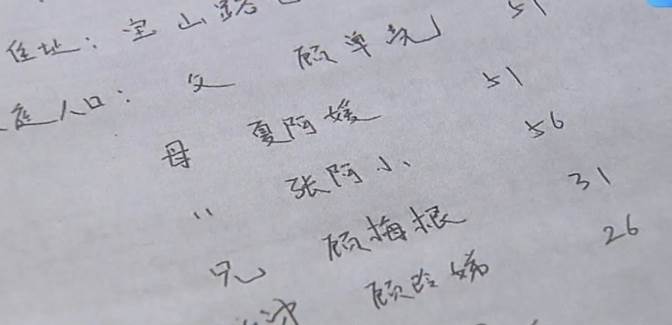 住址：宝山路
庭人口：父 顾单 51
母 夏阿媛 51
〃 张阿小 56
兄 顾梅根 31
顾玲娣 26